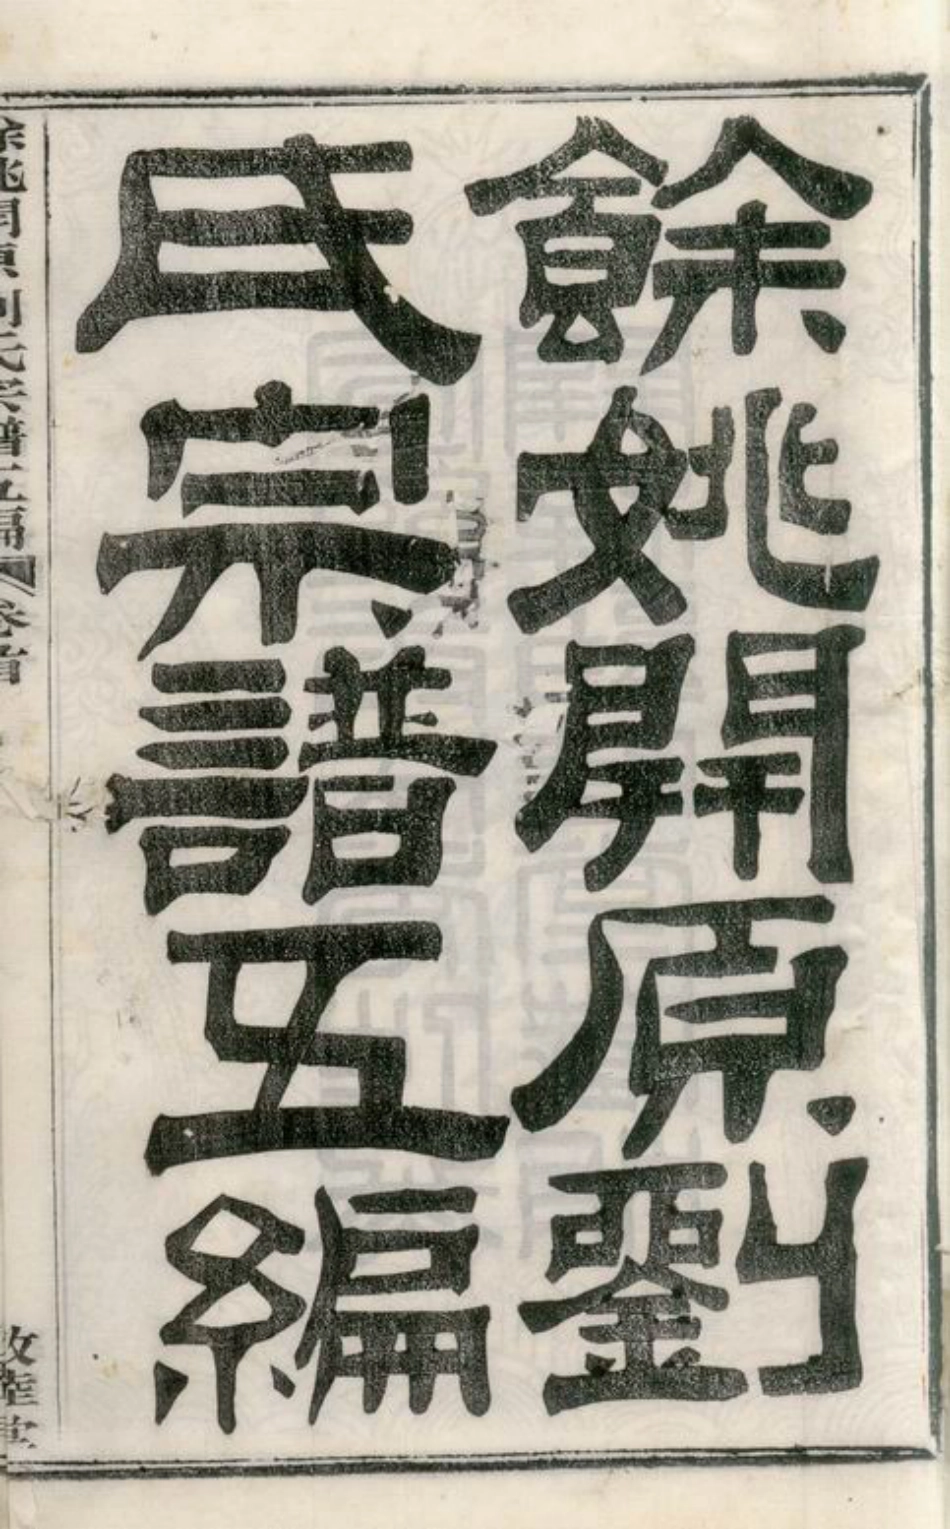 餘姚開原劉
氏宗譜五編
餘姚開原劉氏宗譜五編 卷首